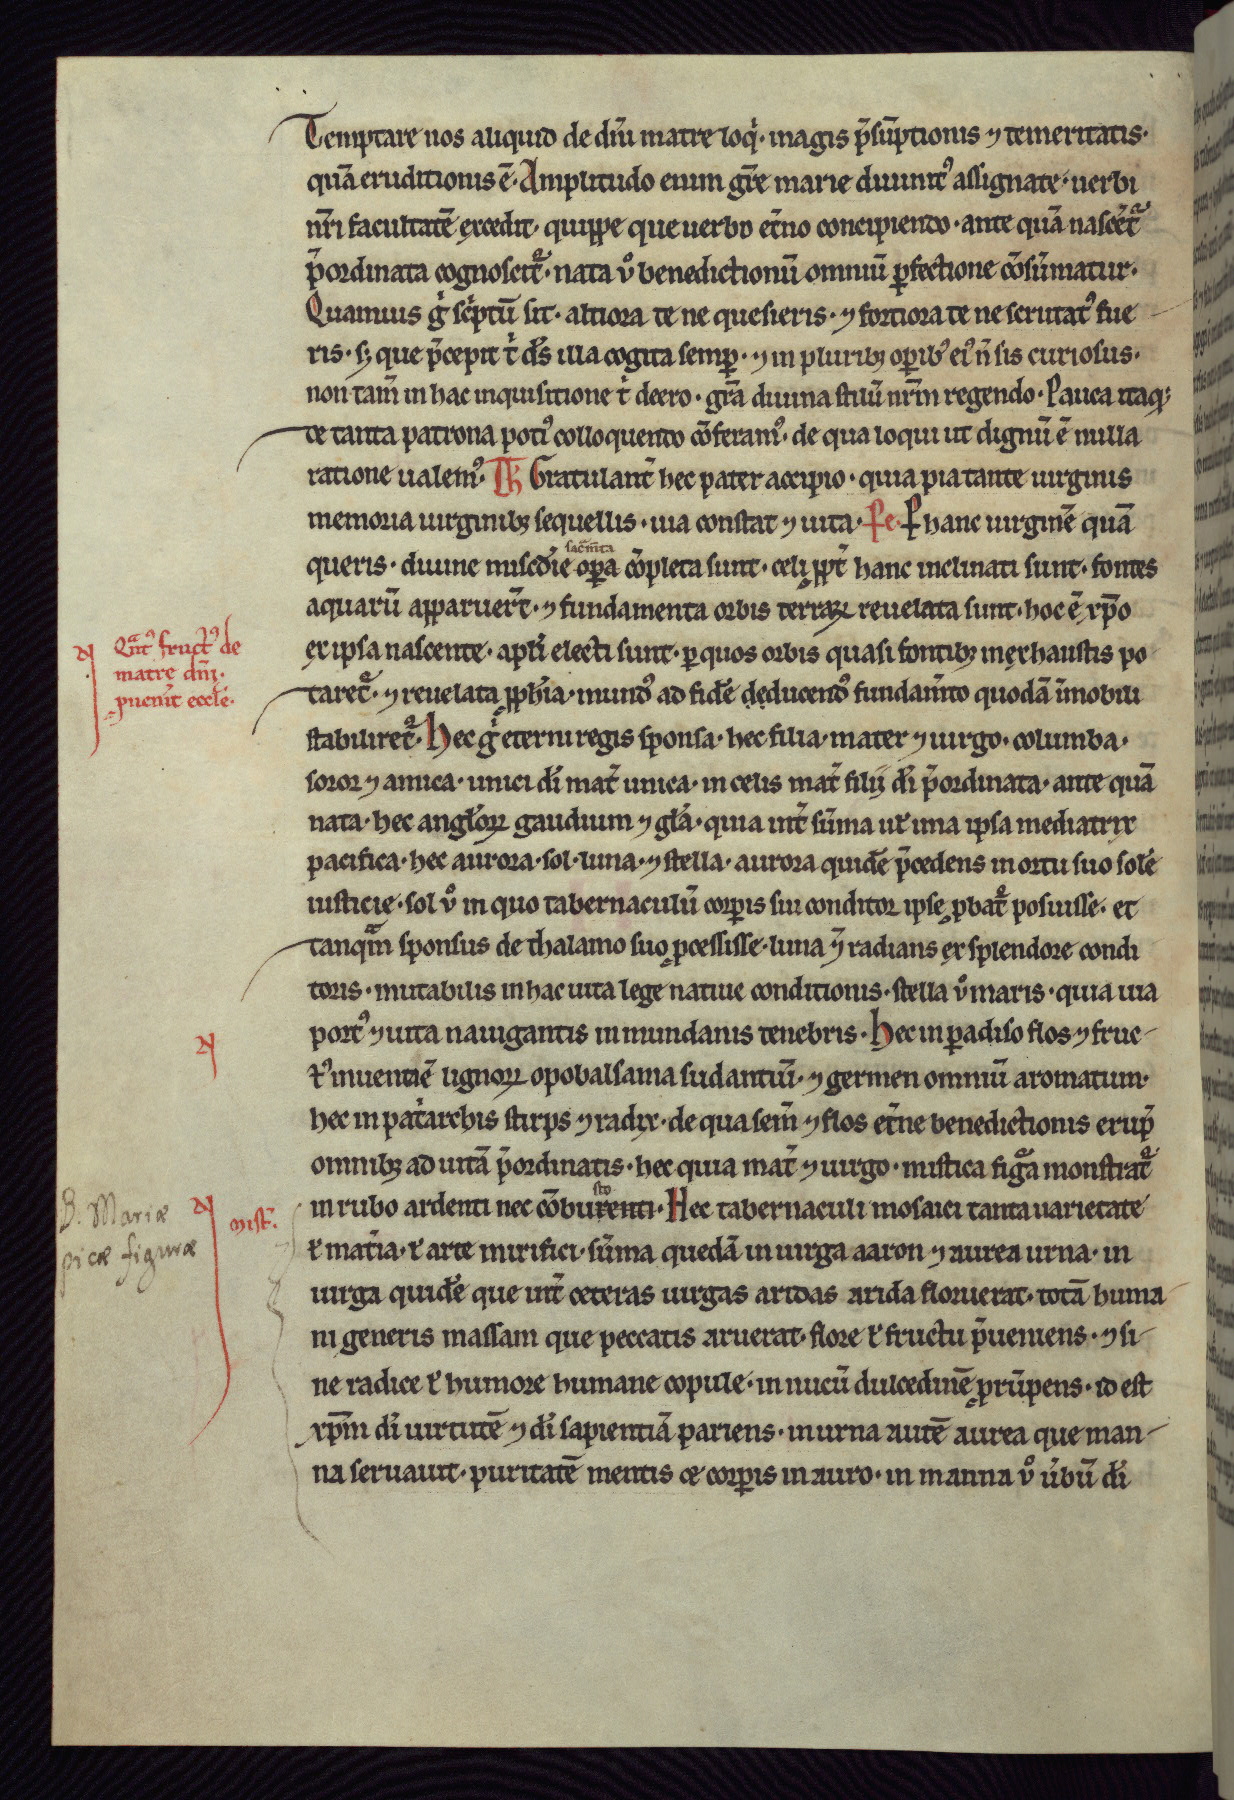 Temptare nos aliquid de dm̄i matre loq̇i· magis p̄sūptionis ⁊ temeritatis·
quā eruditionis ē· Amplitudo enim gr̄e marie diuinitꝰ assignate· uerbi
nr̄i facultatē excedit· quippe que uerbo et̄no concipiendo· ante quā nascēt᷑
p̄ordinata cognoscit᷑· nata v̊ benedictionū omniū ꝑfectione cōsūmatur·
Quamuis gͥ scͥptū sit· altiora te ne quesieris· ⁊ fortiora te ne scrutatꝰ fue
ris· sꝫ que p̄cepit tͥ ds̄ illa cogita semꝑ· ⁊ in pluribꝫ oꝑibꝰ eiꝰ n̄ sis curiosus·
non tam̄ in hac inquisitione tͥ deero· gr̄a diuina stilū nr̄m regendo· Pauca itaqꝫ
de tanta patrona potiꝰ colloquendo cōferamꝰ· de qua loqui ut dignū ē nulla
ratione ualemꝰ· Th Gratulant̄ hec pater accipio· quia pia tante uirginis
memoria uirginibꝫ sequellis· uia constat ⁊ uita· Pe· P hanc uirginē quā
queris· diuine miscd̄ie oꝑa cōpleta sunt· celi ꝓpt̄ hanc inclinati sunt· fontes
sac̄mta
aquarū apparuer̄t· ⁊ fundamenta orbis terraꝝ reuelata sunt· hoc ē xp̄o
ex ipsa nascente· apl̄i electi sunt· ꝑ quos orbis quasi fontibꝫ inexhaustis po
taret᷑· ⁊ reuelata ꝓph̄ia· mundꝰ ad fidē deducendꝰ fundam̄to quodā īmobili
stabiliret᷑· Hec gͥ eterni regis sponsa· hec filia· mater ⁊ uirgo· columba·
soror ⁊ amica· unici di̅ mat̄ unica· in celis mat̄ filij di̅ p̄ordinata· ante quā
nata· hec angl̄oꝝ gaudium ⁊ gl̄a· quia int̄ sūma ⁊ ima ipsa mediatrix
pacifica· hec aurora· sol· luna· ⁊ stella· aurora quidē p̄cedens in ortu suo solē
iusticie· sol v̊ in quo tabernaculū corꝑis sui conditor ipse ꝓbat᷑ posuisse· et
tanqᷓm sponsus de thalamo suo ꝓcessisse· luna ū radians ex splendore condi
toris· mutabilis in hac uita lege natiue conditionis· stella v̊ maris· quia uia
portꝰ ⁊ uita nauigantis in mundanis tenebris· Hec in ꝑadiso flos ⁊ fruc-
tꝰ inuentiē lignoꝝ opobalsama sudantiū· ⁊ germen omniū aromatum·
hec in pat̄archis stirps ⁊ radix· de qua sem̄ ⁊ flos et̄ne benedictionis erup̄
omnibꝫ ad uitā p̄ordinatis· hec quia mat̄ ⁊ uirgo· mistica figᷓa monstrat᷑
in rubo ardenti nec cōburenti· Hec tabernaculi mosaici tanta uarietate
sto
⁊ mat̄ia· ⁊ arte mirifici· sūma quedā in uirga aaron ⁊ aurea urna· in
uirga quidē que int̄ ceteras uirgas aridas arida floruerat· totā huma
ni generis massam que peccatis aruerat· flore ⁊ fructu p̄ueniens· ⁊ si-
ne radice ⁊ humore humane copule· in nucū dulcedinē ꝓrūpens· id est
xp̄m di̅ uirtutē ⁊ di̅ sapientiā pariens· in urna autē aurea que man-
na seruauit· puritatē mentis ce corꝑis in auro· in manna v̊ ūbū di̅
Qᷓntꝰ fructꝰ de
matre dm̄i·
ꝓuen̄it eccl̄e·
mist̄·
B. Mariæ
picæ figuræ